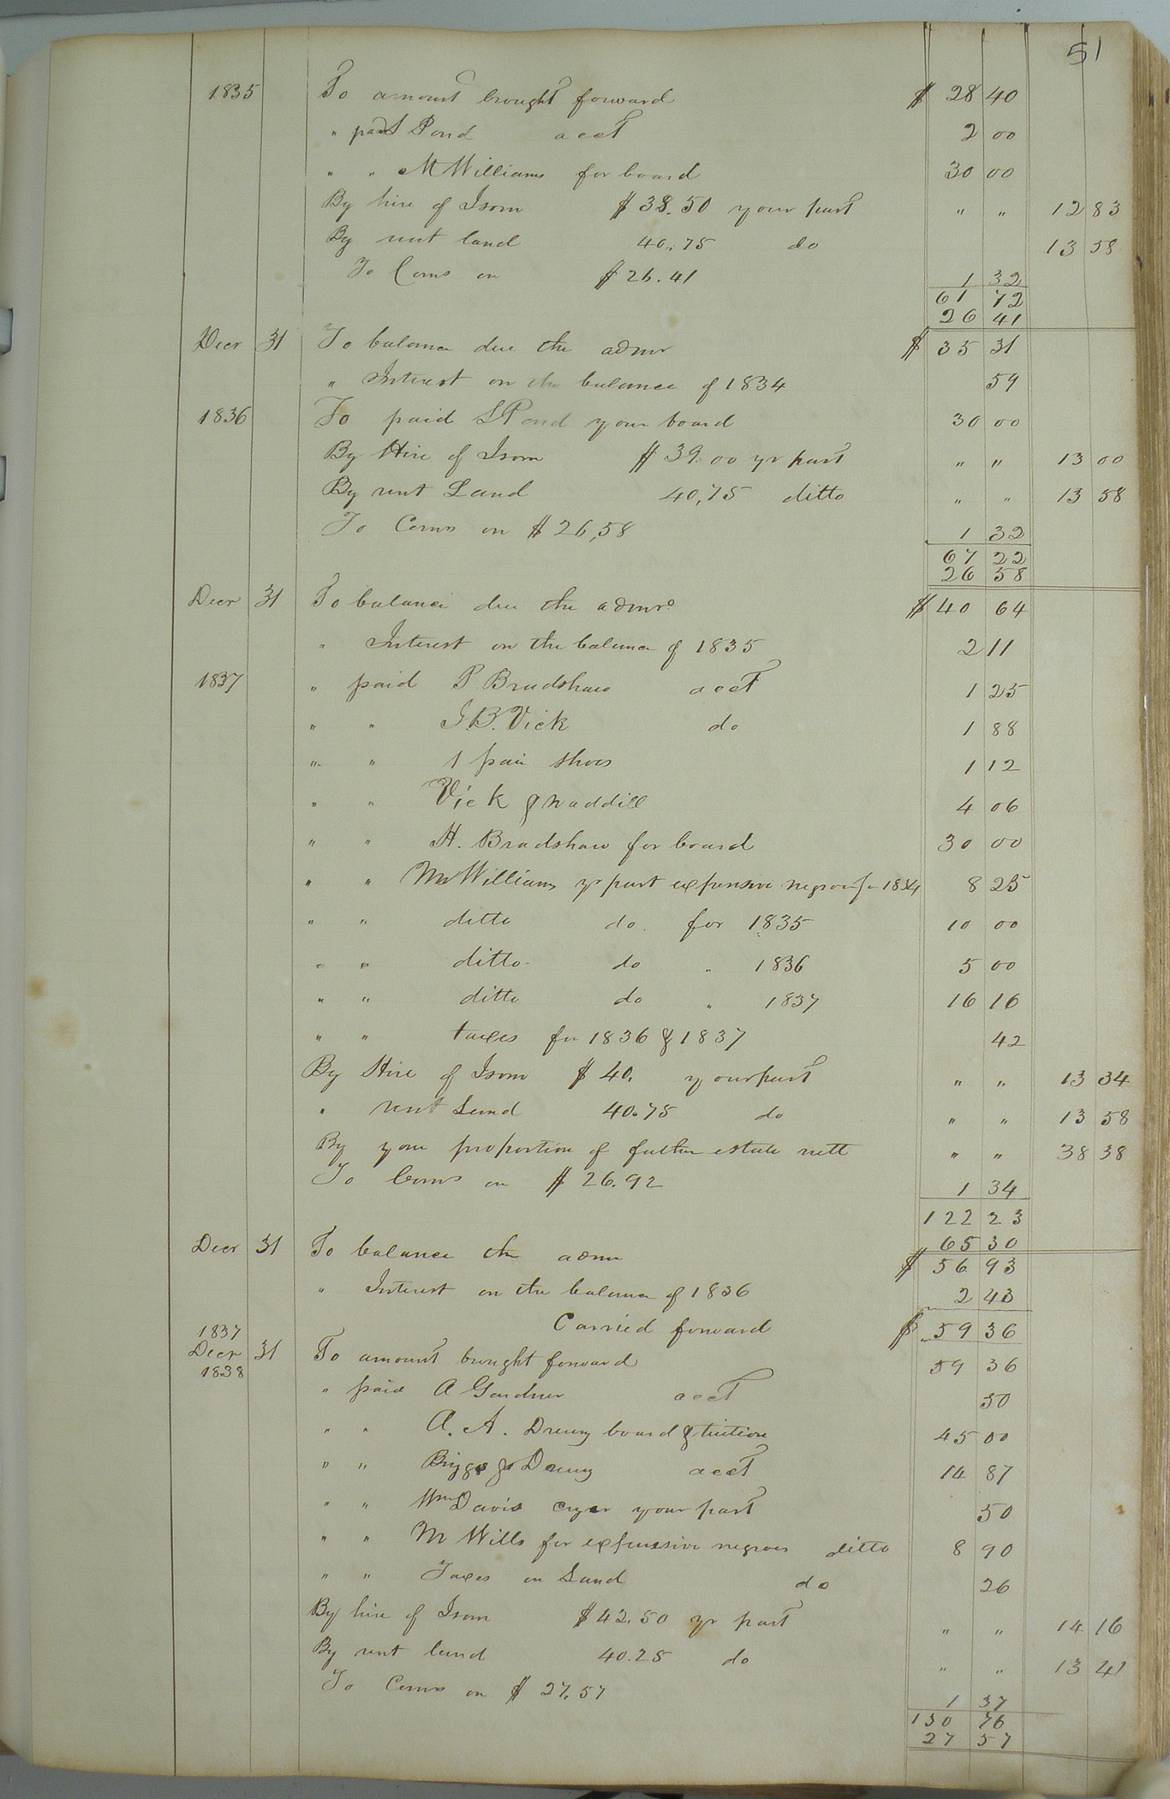 51
1835 To amount brought forward $ 28 40
" paid S Pond acct 2 00
" " M Williams for board 30 00
By hire of Isom $ 38.50 your part " " 12 83
By rent land 40.75 do 13 58
To Coms on $ 26.41 1 32
61 72
26 41
Decr 31 To balance due the admr $ 35 31
" Interest on the balance of 1834 59
1836 To paid S Pond your board 30 00
By Hire of Isom $ 39.00 yr part " " 13 00
By rent Land 40,75 ditto " " 13 58
To Coms on $ 26,58 1 32
67 22
26 58
Decr 31 To balance due the admr $ 40 64
" Interest on the balance of 1835 2 11
1837 " paid P Bradshaw acct 1 25
" " J.B. Vick do 1 88
" " 1 pair shoes 1 12
" " Vick & Waddill 4 06
" " H. Bradshaw for board 30 00
" " M Williams yr part expensive negroes for 1834 8 25
" " ditto do. for 1835 10 00
" " ditto do " 1836 5 00
" " ditto do " 1837 16 16
" " taxes for 1836 & 1837 42
By Hire of Isom $ 40. your part " " 13 34
" rent Land 40.75 do " " 13 58
By your proportion of father estate nett " " 38 38
To Coms on $ 26.92 1 34
122 23
65 30
Decr 31 To balance the admr $ 56 93
" Interest on the balance of 1836 2 43
Carried forward $ 59 36
1837
Decr 31 To amount brought forward 59 36
1838
" paid A Gardner acct 50
" " A. A. Drewry board & tuition 45 00
" " Briggs & Drewry acct 14 87
" " Wm Davis cryer your part 50
" " M Wills for expensive negroes ditto 8 90
" " Taxes on Land do 26
By hire of Isom $ 42.50 yr part " " 14 16
By rent land 40.25 do " " 13 41
To Coms on $ 27.57 1 37
130 76
27 57